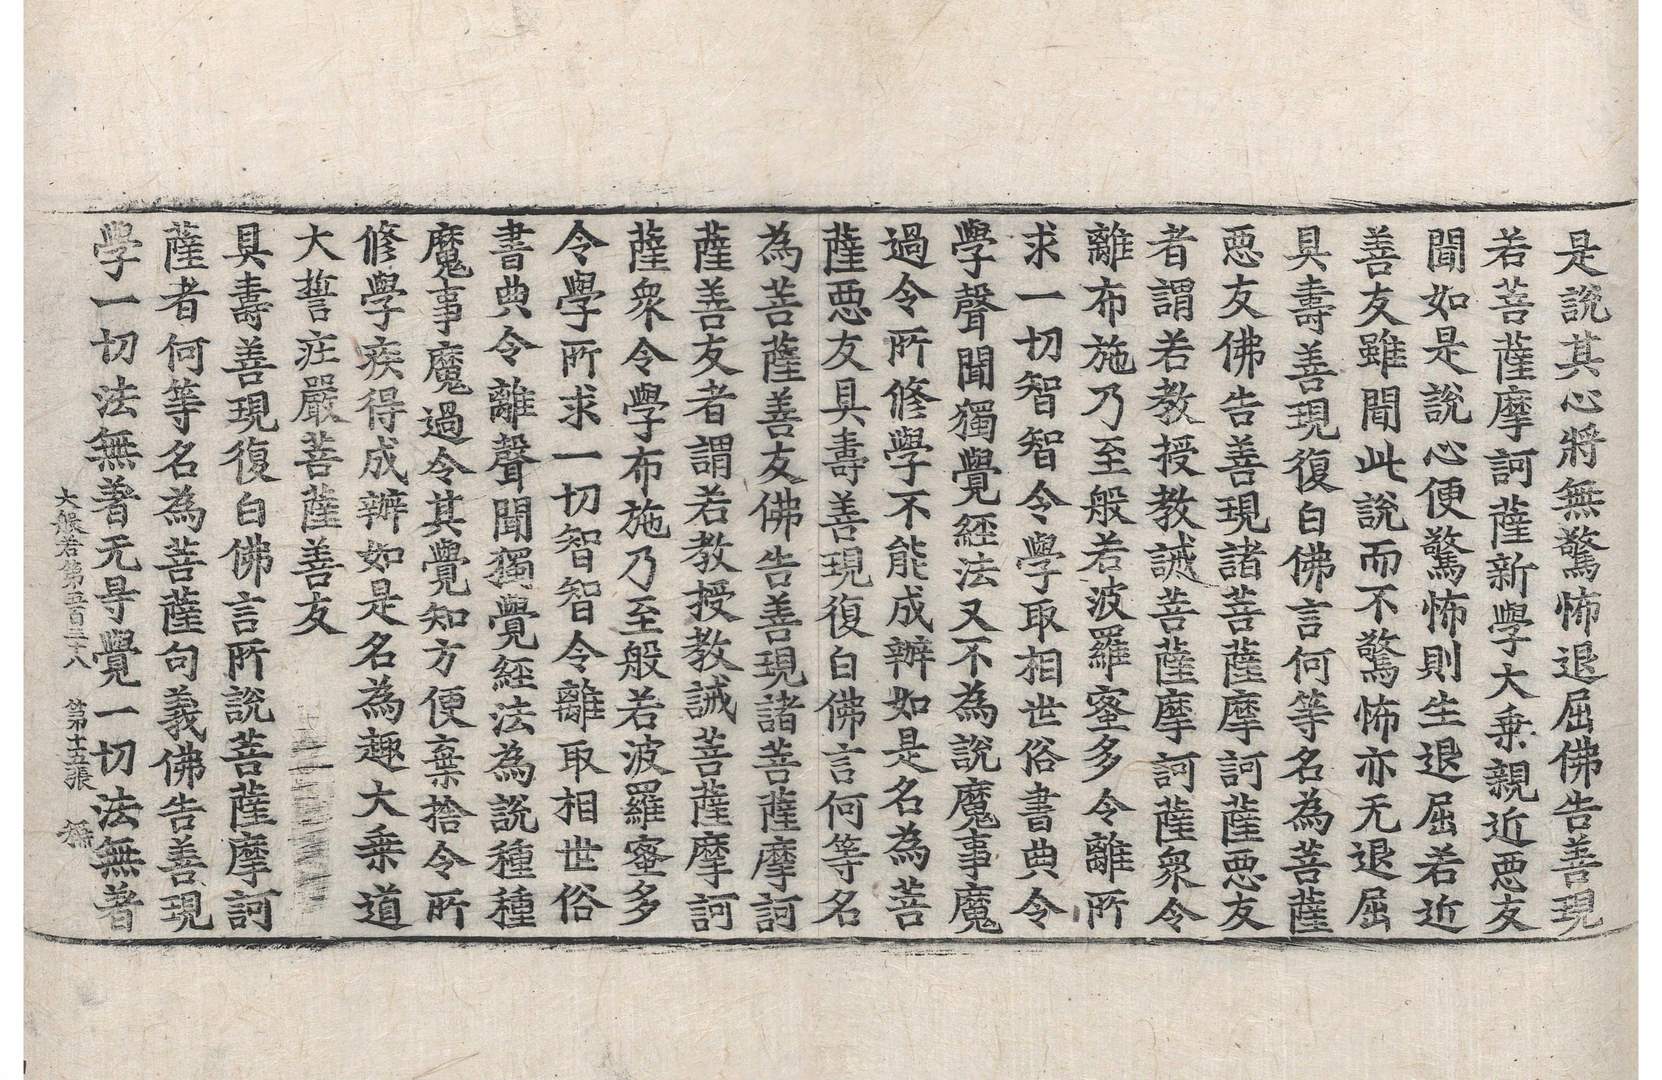 是說其心將無驚怖退屈佛告善現
若菩薩摩訶薩新學大乗親近惡友
聞如是說心便驚怖則生退屈若近
善友雖聞此說而不驚怖亦无退屈
具壽善現復白佛言何等名為菩薩
惡友佛告善現諸菩薩摩訶薩惡友
者謂若教授教誡菩薩摩訶薩衆令
離布施乃至般若波羅蜜多令離所
求一切智智令學取相世俗書典令
學聲聞獨覺經法又不為說魔事魔
過令所修學不能成辦如是名為菩
薩惡友具壽善現復白佛言何等名
為菩薩善友佛告善現諸菩薩摩訶
薩善友者謂若教授教誡菩薩摩訶
薩衆令學布施乃至般若波羅蜜多
令學所求一切智智令離取相世俗
書典令離聲聞獨覺經法為說種種
魔事魔過令其覺知方便棄捨令所
修學疾得成辦如是名為趣大乗道
大誓庄嚴菩薩善友
具壽善現復白佛言所說菩薩摩訶
薩者何等名為菩薩句義佛告善現
學一切法無著无㝵覺一切法無著
大般若第五百三十八 第十五張